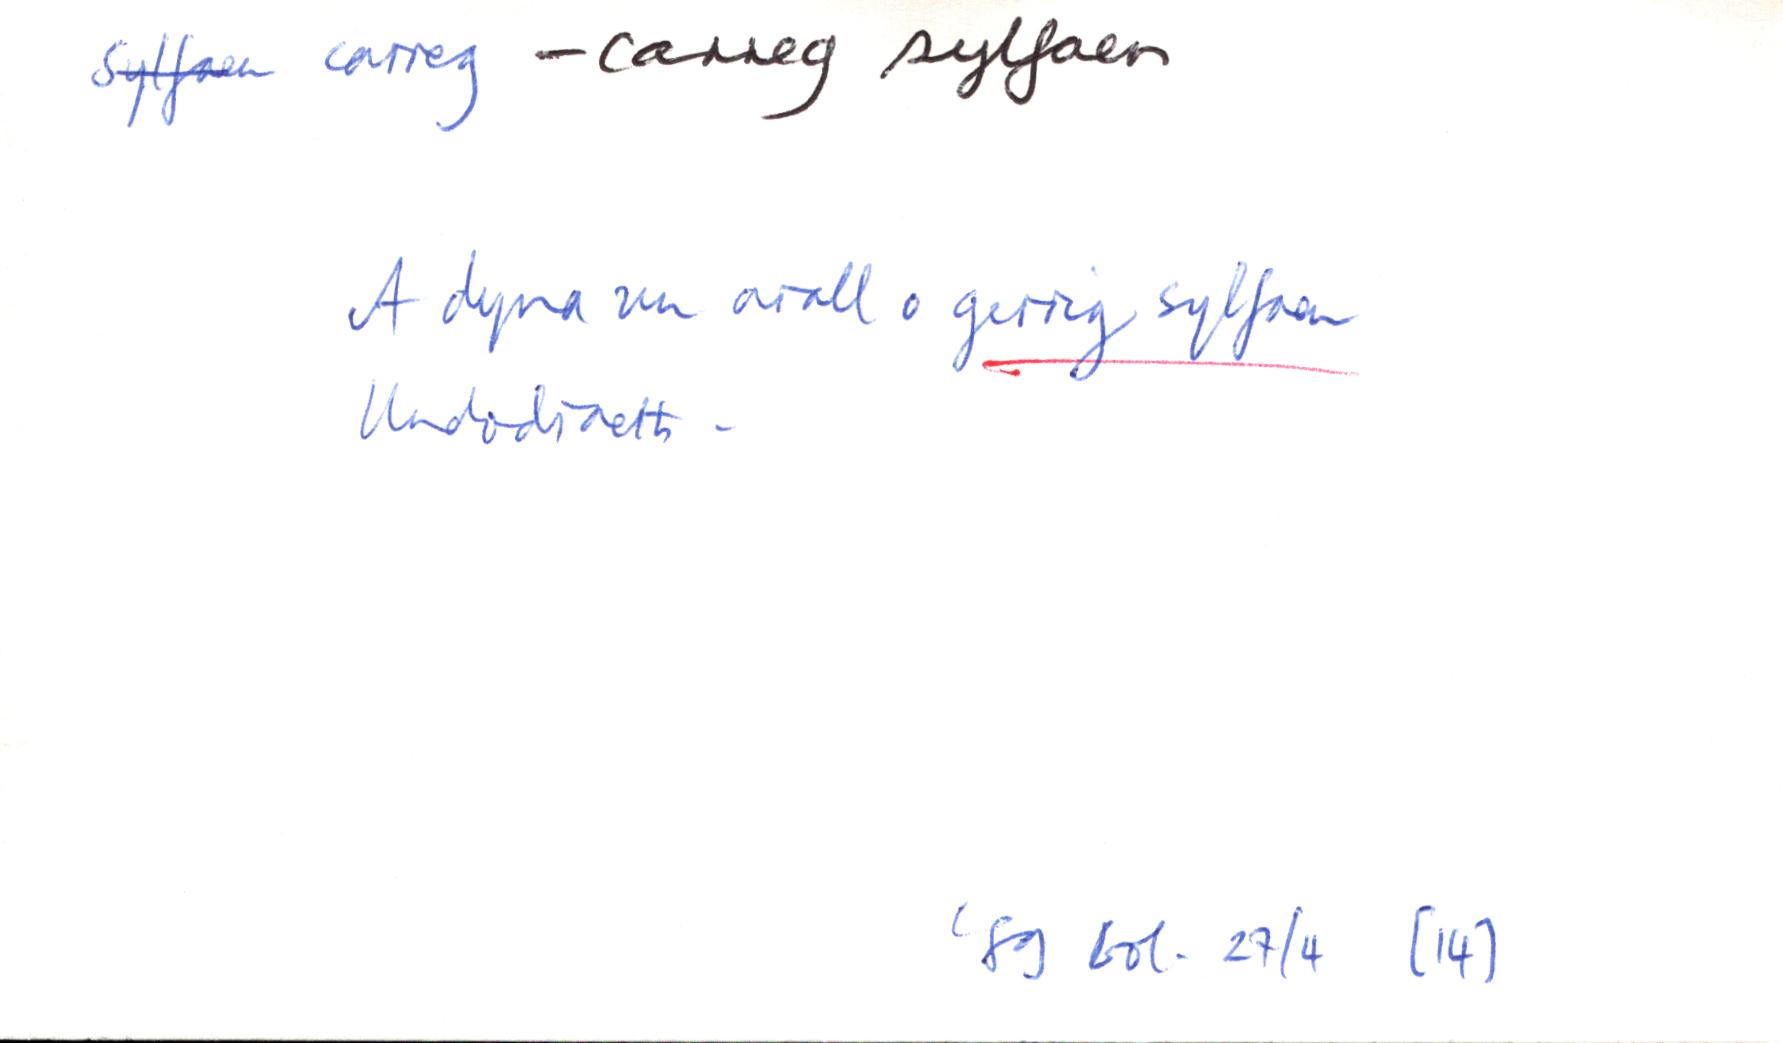 sylfaen carreg – carreg sylfaen
A dyna un arall o gerrig sylfaen
Undodiaeth -
'89 Gol. 27/4 [14]